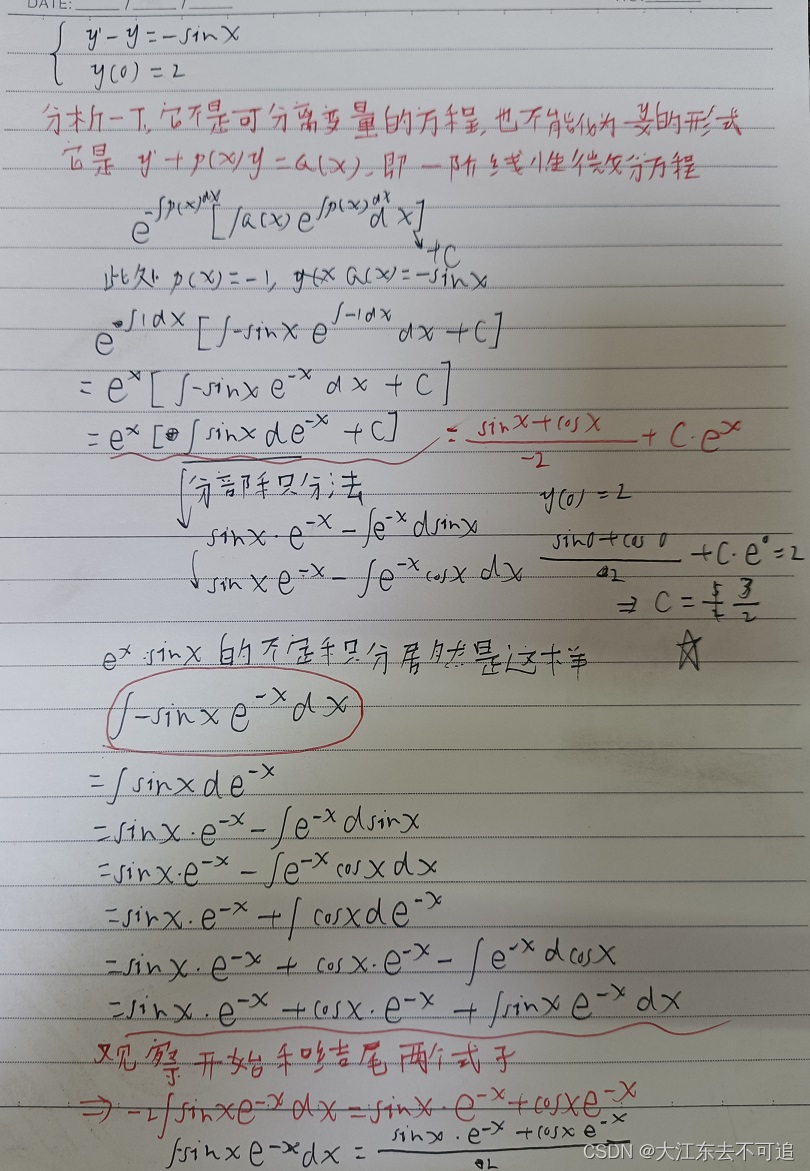 DATE: / /
y' - y = -sinx
y(0) = 2
分析一下,它不是可分离变量的方程,也不能化为 y/x 的形式
它是 y' + p(x)y = Q(x),即一阶线性微分方程
e^{-∫p(x)dx} [∫Q(x) e^{∫p(x)dx} dx] +C
此处 p(x) = -1, Q(x) = -sinx
e^{∫1dx} [∫-sinx e^{∫-1dx} dx + C]
= e^x [∫-sinx e^{-x} dx + C]
= e^x [∫sinx de^{-x} + C] = (sinx + cosx)/-2 + C·e^x
分部积分法
y(0) = 2
sinx·e^{-x} - ∫e^{-x} dsinx
sinx e^{-x} - ∫e^{-x} cosx dx
(sin0 + cos0)/2 + C·e^0 = 2
⇒ C = 3/2
e^x sinx 的不定积分居然是这样 ☆
∫-sinx e^{-x} dx
= ∫sinx de^{-x}
= sinx·e^{-x} - ∫e^{-x} dsinx
= sinx·e^{-x} - ∫e^{-x} cosx dx
= sinx·e^{-x} + ∫cosx de^{-x}
= sinx·e^{-x} + cosx·e^{-x} - ∫e^{-x} dcosx
= sinx·e^{-x} + cosx·e^{-x} + ∫sinx e^{-x} dx
观察开始和结尾两个式子
⇒ -2∫sinx e^{-x} dx = sinx·e^{-x} + cosx e^{-x}
∫-sinx e^{-x} dx = (sinx·e^{-x} + cosx e^{-x})/2
CSDN @大江东去不可追